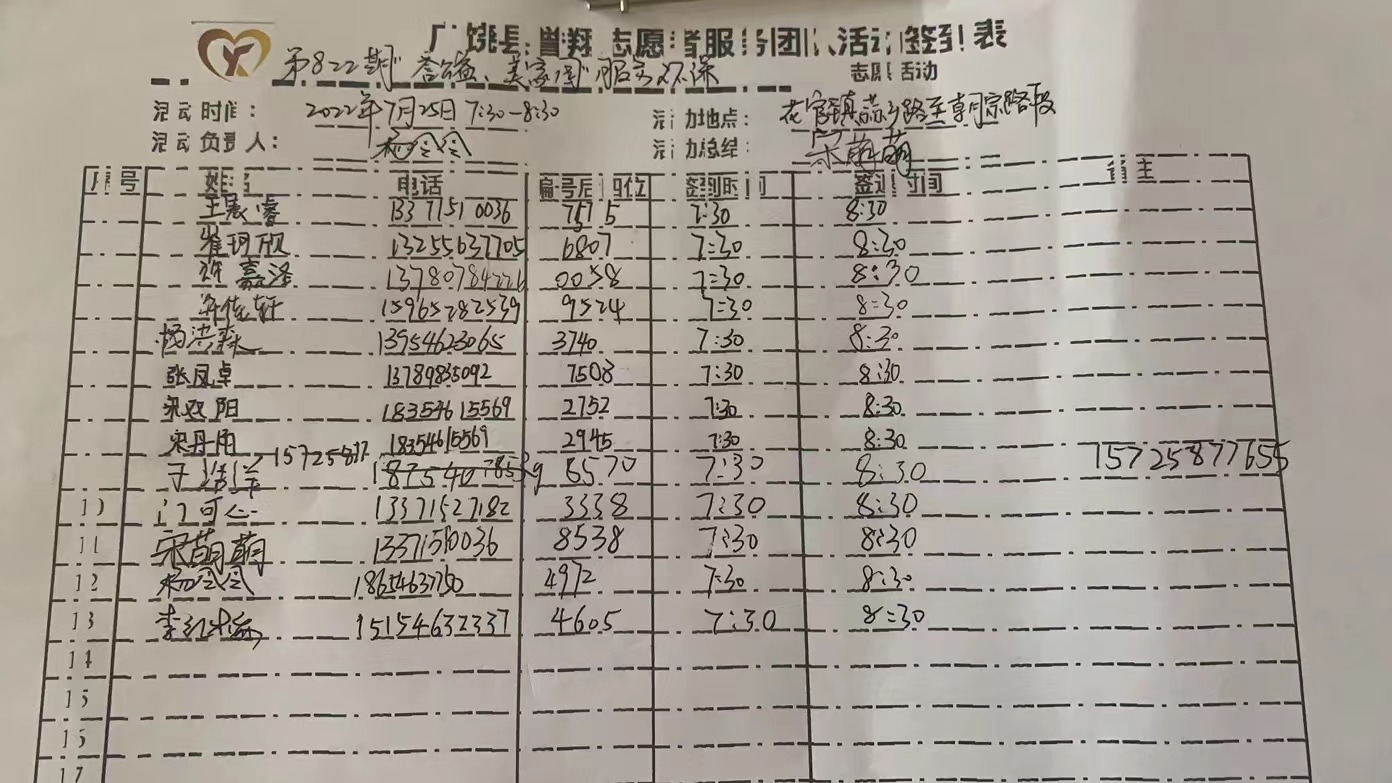 广饶县誉翔志愿者服务团队活动签到表
第822期 美家园 服务
志愿活动
活动时间: 2022年7月25日 7:30-8:30 活动地点: 花官镇蒜乡路至朝宗路段
活动负责人: 杨令令 活动总结: 宋萌萌
序号 姓名 电话 编号后四位 签到时间 签退时间 备注
王晨睿 13371510036 7515 7:30 8:30
崔珂欣 13255637705 6807 7:30 8:30
许嘉泽 13780784226 0058 7:30 8:30
轩 15965282539 9524 7:30 8:30
杨洪森 13954623065 3740 7:30 8:30
张凤卓 13789835092 7508 7:30 8:30
阳 18354615569 2752 7:30 8:30
宋丹雨 18354615569 2945 7:30 8:30
15725877 6570 7:30 8:30 15725877655
10 门可心 13371527182 3338 7:30 8:30
11 宋萌萌 13371510036 8538 7:30 8:30
12 杨令令 18654637750 4972 7:30 8:30
13 李红梅 15154632337 4605 7:30 8:30
14
15
16
17